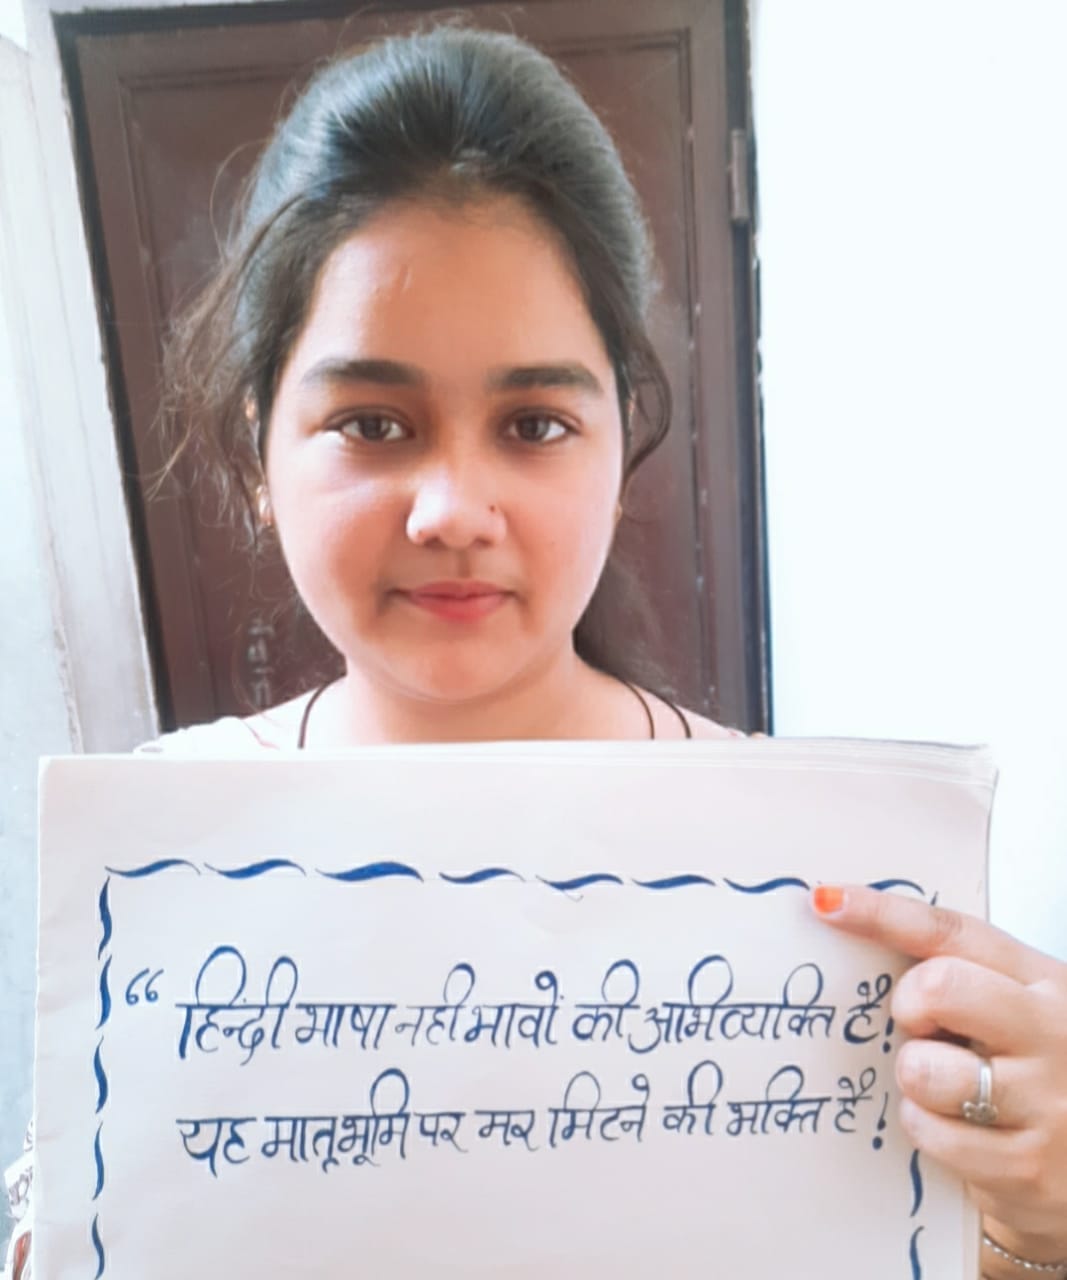 “ हिन्दी भाषा नही भावों की अभिव्यक्ति है!
यह मातृभूमि पर मर मिटने की भक्ति है!